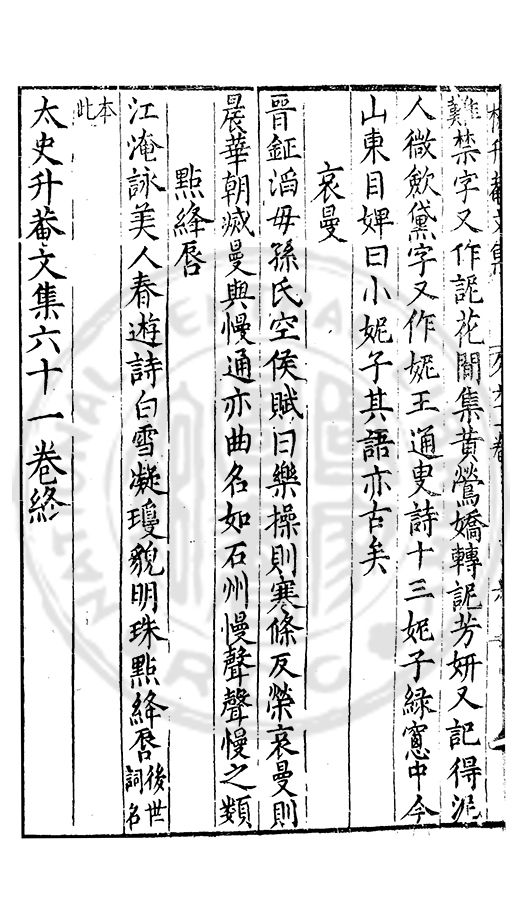 難禁字又作䛏花間集黃鶯嬌轉䛏芳妍又記得泥
人微歛黛字又作妮王通叟詩十三妮子綠窻中今
山東目婢曰小妮子其語亦古矣
哀曼
晉鈕滔母孫氏空侯賦曰樂操則寒條反榮哀曼則
晨華朝滅曼與慢通亦曲名如石州慢聲聲慢之類
點絳唇
江淹詠美人春遊詩白雪凝瓊貌明珠點絳唇後世詞名
本此
太史升菴文集六十一卷終